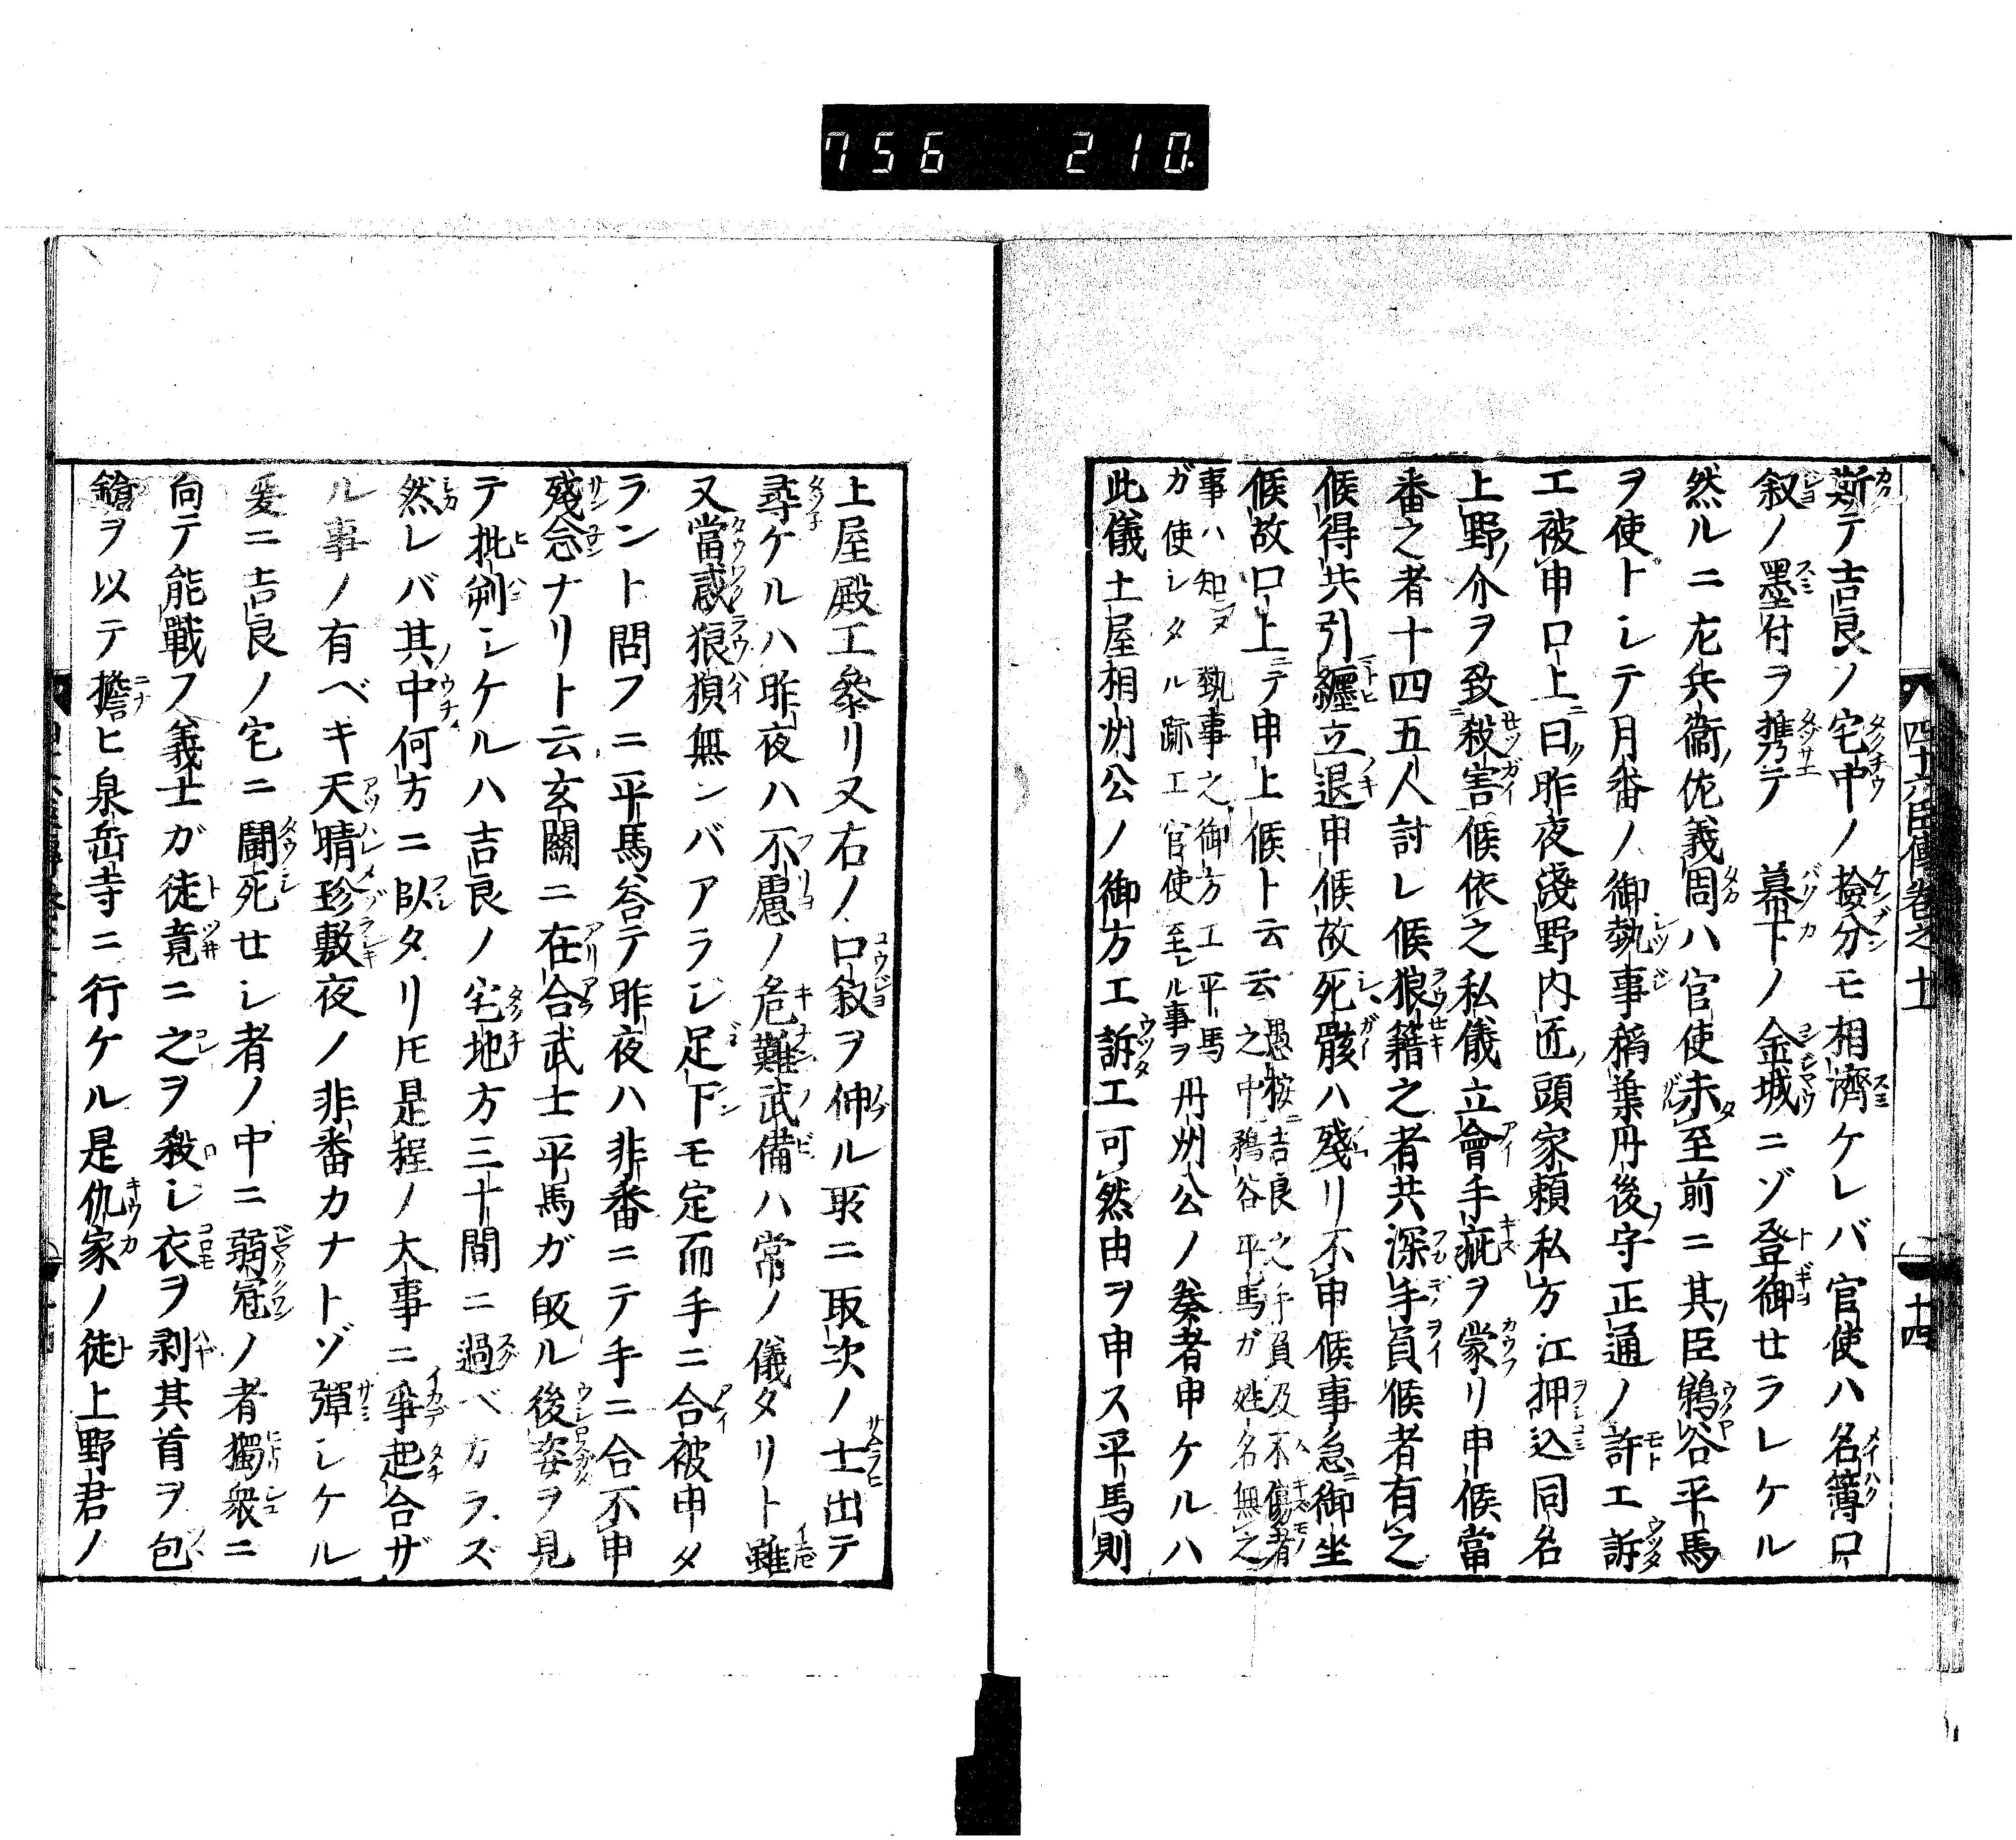 756 210.
四十六臣傳巻之十一 十四
斯テ吉良ノ宅中ノ撿分モ相濟ケレバ官使ハ名簿口
叙ノ墨付ヲ携テ 幕下ノ金城ニゾ登御セラレケル
然ルニ左兵衞佐義周ハ官使未至前ニ其臣鵜谷平馬
ヲ使トシテ月番ノ御執事稻葉丹後守正通ノ許エ訴
エ被申口上曰昨夜淺野内匠頭家頼私方江押込同名
上野介ヲ致殺害候依之私儀立會手疵ヲ蒙リ申候當
番之者十四五人討レ候狼籍之者共深手負候者有之
候得共引纒立退申候故死骸ハ殘リ不申候事急御坐
候故口上ニテ申上候ト云云 愚桉ニ吉良之手負及不傷者
之中鵜谷平馬ガ姓名無之
事ハ知ヌ執事之御方エ平馬
ガ使シタル跡エ官使至レル事ヲ 丹州公ノ奏者申ケルハ
此儀土屋相州公ノ御方エ訴エ可然由ヲ申ス平馬則
土屋殿エ參リ又右ノ口叙ヲ伸ル取ニ取次ノ士出テ
尋ケルハ昨夜ハ不慮ノ危難武備ハ常ノ儀タリト雖
又當惑狼狽無ンバアラジ足下モ定而手ニ合被申タ
ラント問フニ平馬答テ昨夜ハ非番ニテ手ニ合不申
殘念ナリト云玄關ニ在合武士平馬ガ皈ル後姿ヲ見
テ批判シケルハ吉良ノ宅地方三十間ニ過ベカラズ
然レバ其中何方ニ臥タリ𪜈是程ノ大事ニ爭起合ザ
ル事ノ有ベキ天晴珍敷夜ノ非番カナトゾ彈シケル
爰ニ吉良ノ宅ニ鬪死セシ者ノ中ニ弱冠ノ者獨衆ニ
向テ能戰フ義士ガ徒竟ニ之ヲ殺シ衣ヲ剥其首ヲ包
鎗ヲ以テ擔ヒ泉岳寺ニ行ケル是仇家ノ徒上野君ノ